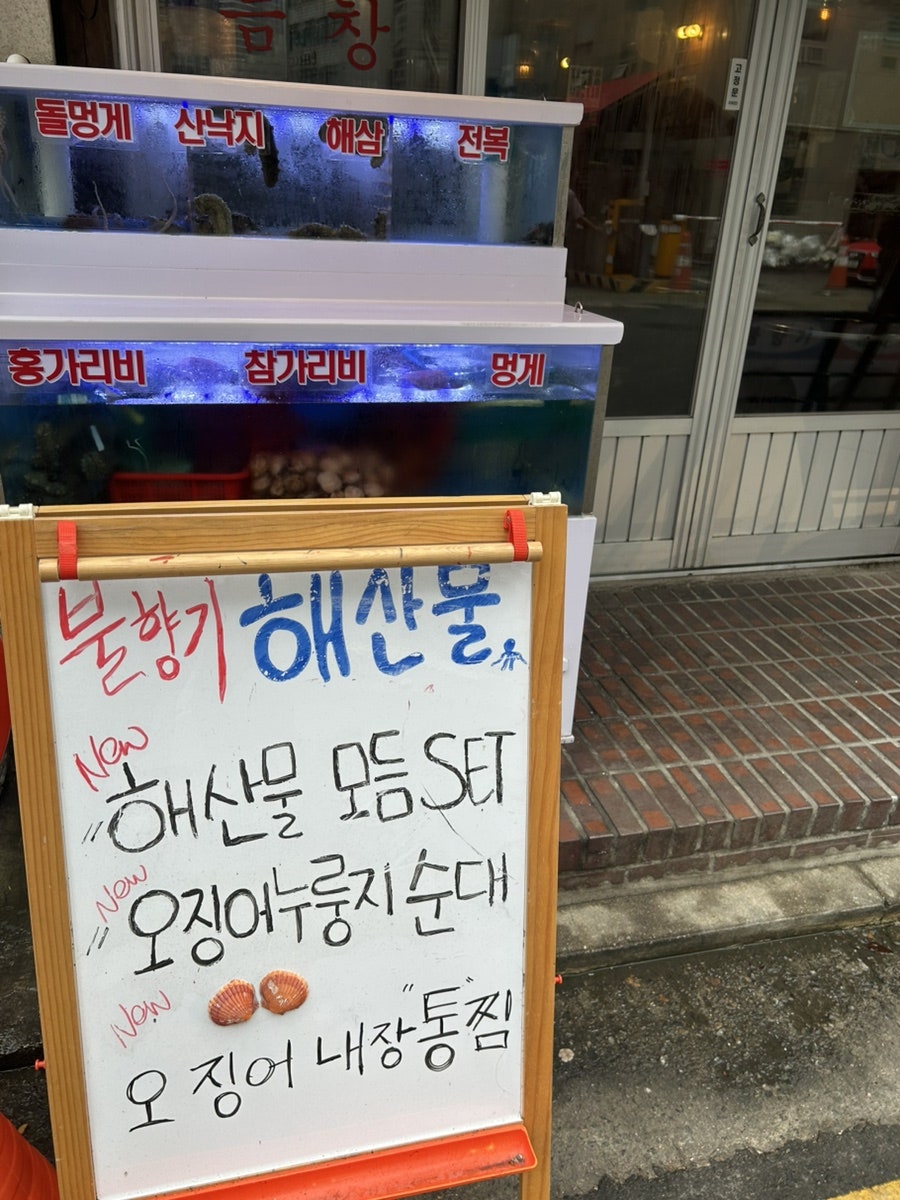 름 창
고정문
돌멍게 산낙지 해삼 전복
홍가리비 참가리비 멍게
불향기 해산물
New
해산물 모듬 SET
New
오징어누룽지순대
New
오징어 내장"통"찜